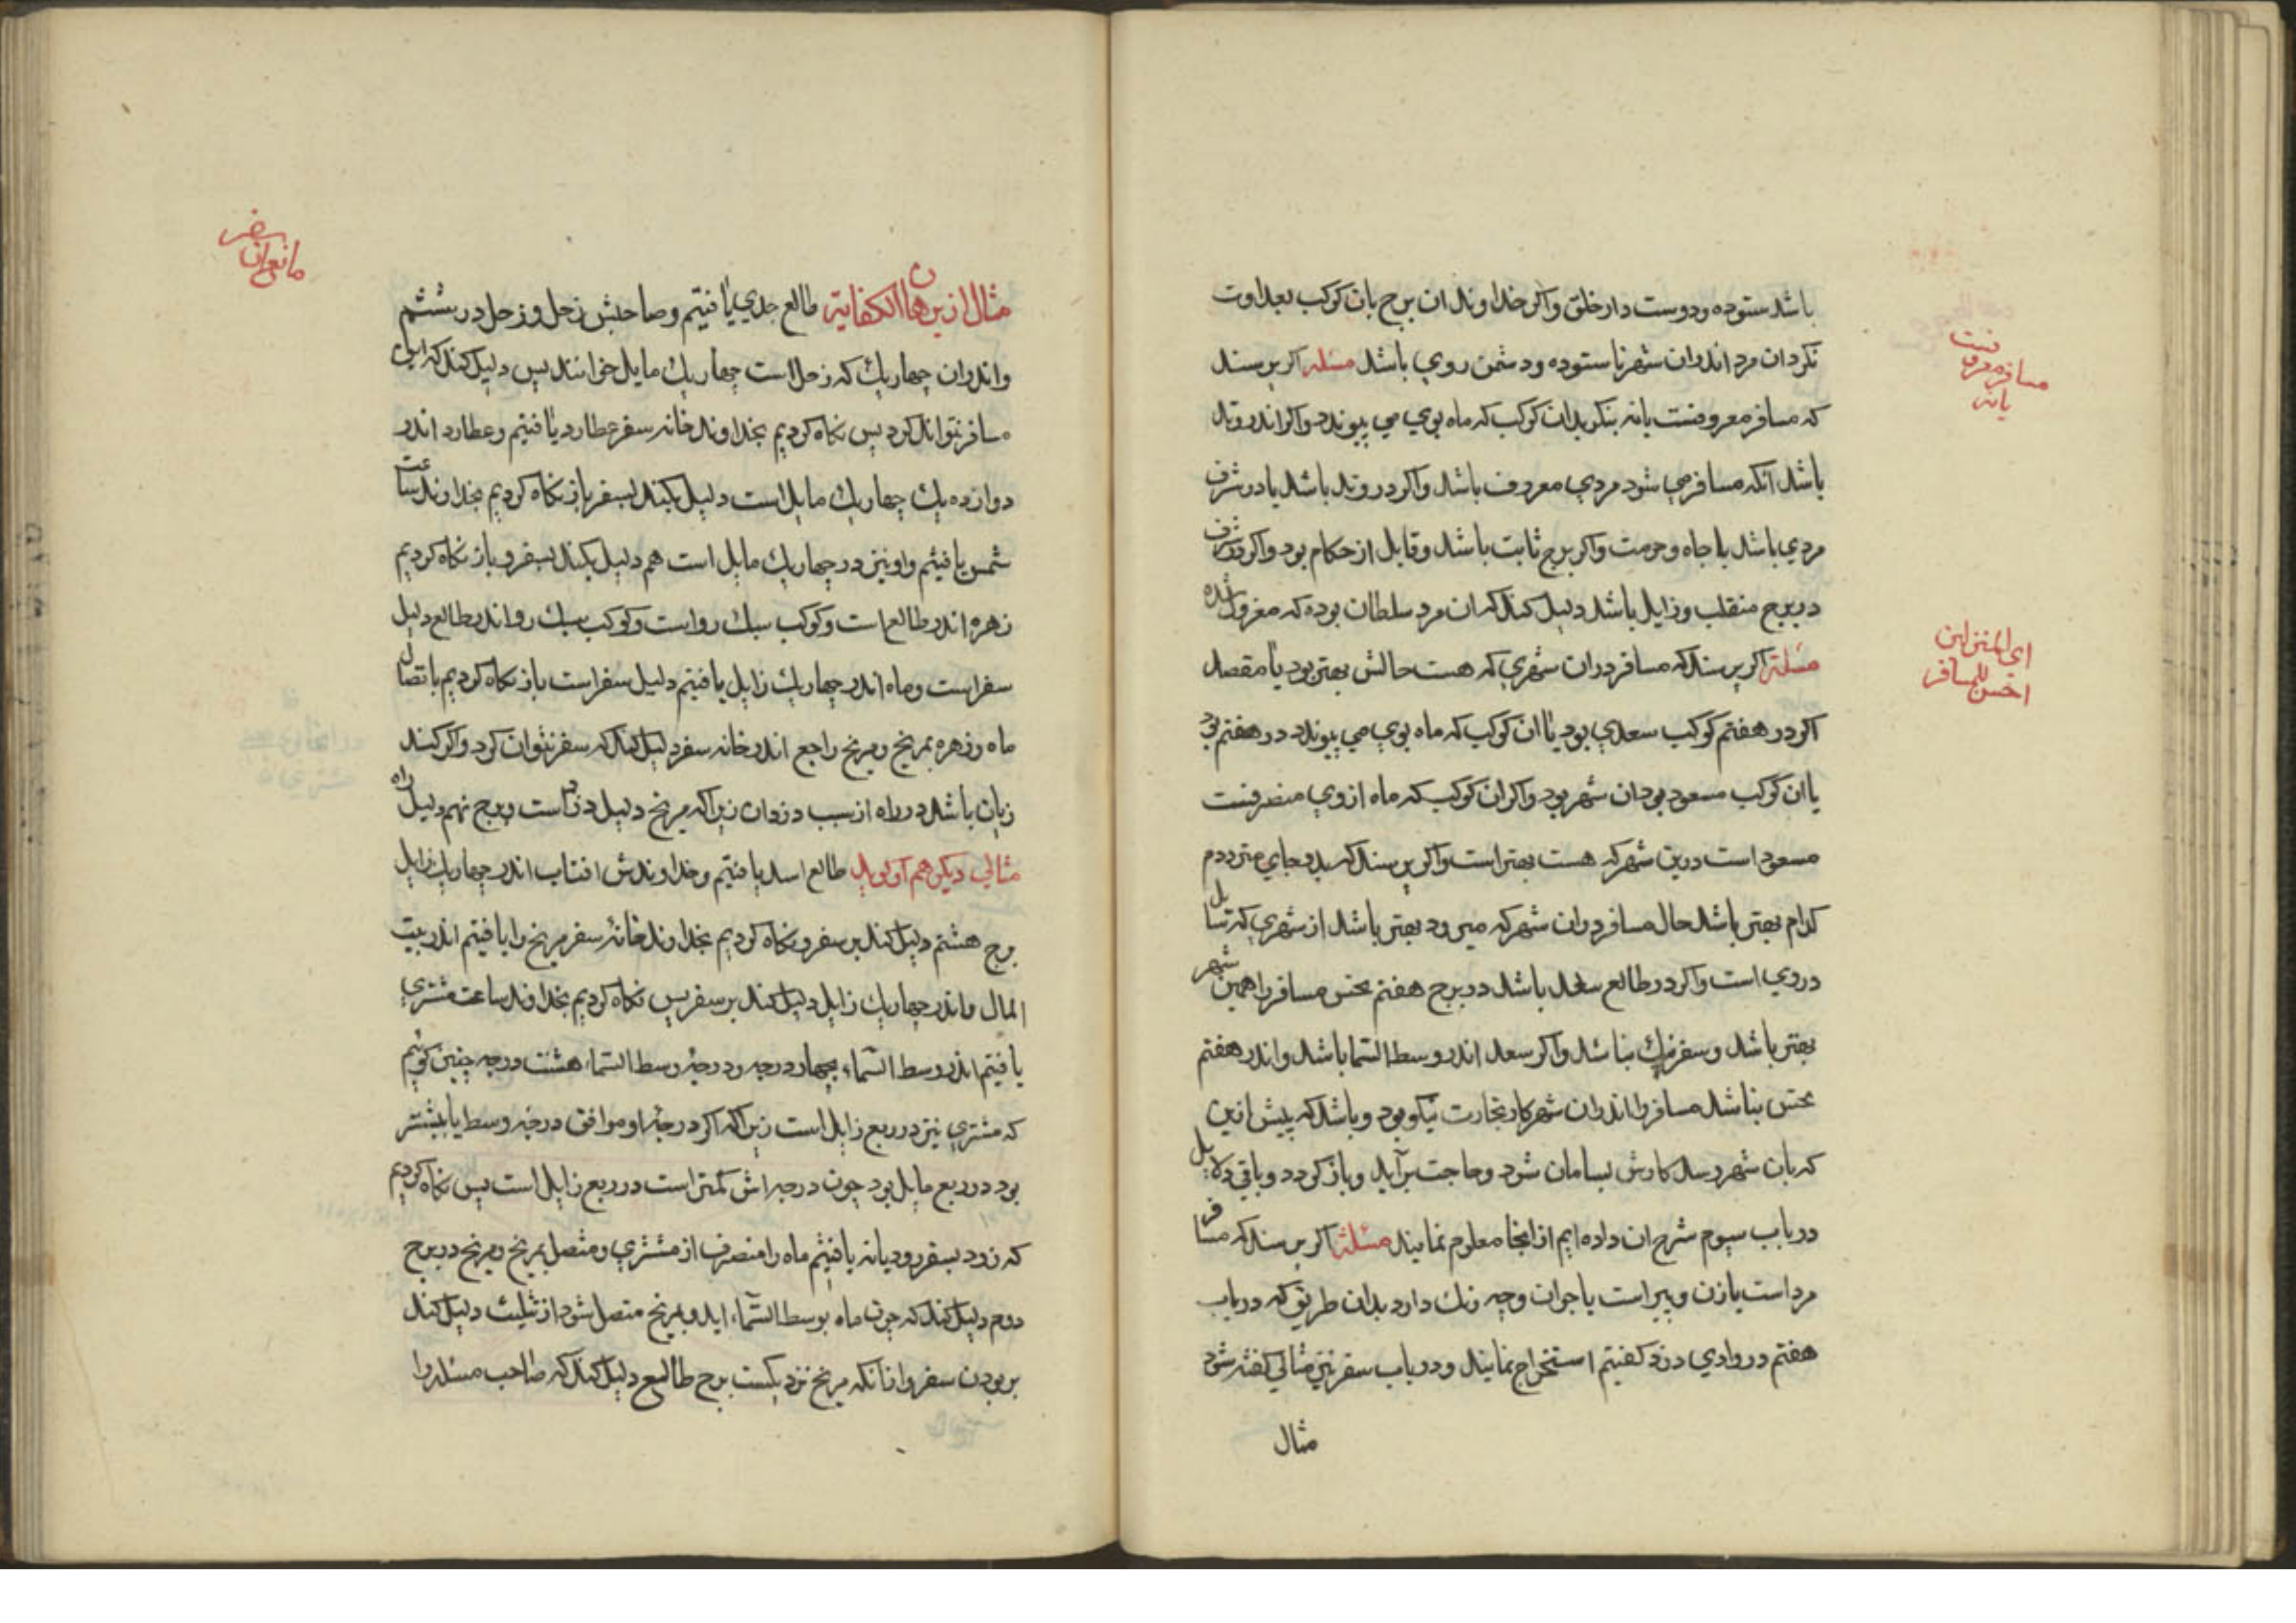 باشد ستوده و دوست دار خلق و اکر خداوند ان برج بان کوکب بعداوت
نکرد ان مرد اندران شهر ناستوده و دشمن روی باشد مسئله اکر پرسند
که مسافر معروفست یا نه بنکرید ان کوکب که ماه بوی می پیوندد و اکر اندر وتد
باشد انکه مسافر می شود مردی معروف باشد و اکر در وتد باشد یا در شرف
مردی باشد با جاه و حرمت و اکر برج ثابت باشد و قابل از حکام بود و اکر در شرف
در برج منقلب و زایل باشد دلیل کند که ان مرد سلطان بوده که معزول شده
مسئلة اکر پرسند که مسافر دران شهری که هست حالش بهتر بود یا مقصد
اکر در هفتم کوکب سعدی بود یا ان کوکب که ماه بوی می پیوندد در هفتم بود
یا ان کوکب مسعود بود ان شهر بود و اکر ان کوکب که ماه از وی منصرفست
مسعود است درین شهر که هست بهتر است و اکر پرسند که بدو جای مترددم
کدام بهتر باشد حال مسافر دران شهر که میرود بهتر باشد از شهری که
در وی است و اکر در طالع سعد باشد در برج هفتم نحس مسافر را همین شهر
بهتر باشد و سفر نیک نباشد و اکر سعد اندر وسط السّما باشد و اندر هفتم
نحس نباشد مسافر را اندران شهر کار تجارت نیکو بود و باشد که پیش ازین
که بان شهر رسد کارش بسامان شود و حاجت برآید و باز کردد و باقی دلایل
در باب سیوم شرح ان داده ایم از انجا معلوم نمایند مسئلة اکر پرسند که مسافر
مرد است یا زن و پیر است یا جوان و چه رنک دارد بدان طریق که در باب
هفتم در وادی دزد کفتیم استخراج نمایند و در باب سفر نیز مثالی کفته شود
مثال
مسافر معروفست
یا نه
ای المنزلین
احسن للمسافر
مثال از برهان الکفایة طالع جدی یافتیم و صاحبش زحل و زحل در ششم
و اندران چهاریك که زحل است چهاریك مایل خوانند پس دلیل کند که این
مسافر نتواند کرد پس نکاه کردیم بخداوند خانه سفر عطارد یافتیم و عطارد اندر
دوازده یك چهاریك مایل است دلیل بکند بسفر باز نکاه کردیم بخداوند ساعت
شمس یافتیم و او نیز در چهاریك مایل است هم دلیل بکند بسفر و باز نکاه کردیم
زهره اندر طالع است و کوکب سبك رو است و کوکب سبك رو اندر طالع دلیل
سفر است و ماه اندر چهاریك زایل یافتیم دلیل سفر است باز نکاه کردیم باتصال
ماه و زهره بمریخ و مریخ راجع اندر خانه سفر دلیل کند که سفر نتوان کرد و اکر کند
زیان باشد در راه از سبب دزدان زیرا که مریخ دلیل دزد است و برج نهم دلیل راه
مثالی دیکر هم طالع اسد یافتیم و خداوندش افتاب اندر چهاریك زایل
برج هشتم دلیل کند بر سفر و نکاه کردیم بخداوند خانۀ سفر مریخ را یافتیم اندر بیت
المال و اندر چهاریك زایل دلیل کند بر سفر پس نکاه کردیم بخداوند ساعت مشتری
یافتیم اندر وسط السّماء بچهار درجه و درجۀ وسط السّماء هشت درجه چنین کوئیم
که مشتری نیز در ربع زایل است زیرا که اکر درجۀ او موافق درجۀ وسط یا بیشتر
بود در ربع مایل بود چون درجه اش کمتر است در ربع زایل است پس نکاه کردیم
که زود بسفر رود یا نه یافتیم ماه را منصرف از مشتری و متصل بمریخ و مریخ در برج
دوم دلیل کند که چون ماه بوسط السّماء اید و بمریخ متصل شود از تثلیث دلیل کند
بر بودن سفر و از انکه مریخ نزدیکست ببرج طالع دلیل کند که صاحب مسئله را
سفر
مانع ان